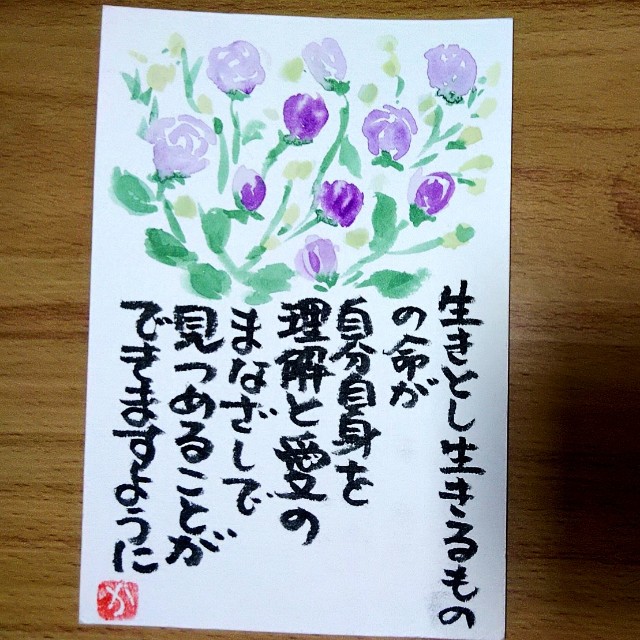 生きとし生きるもの
の命が
自分自身を
理解と愛の
まなざしで
見つめることが
できますように